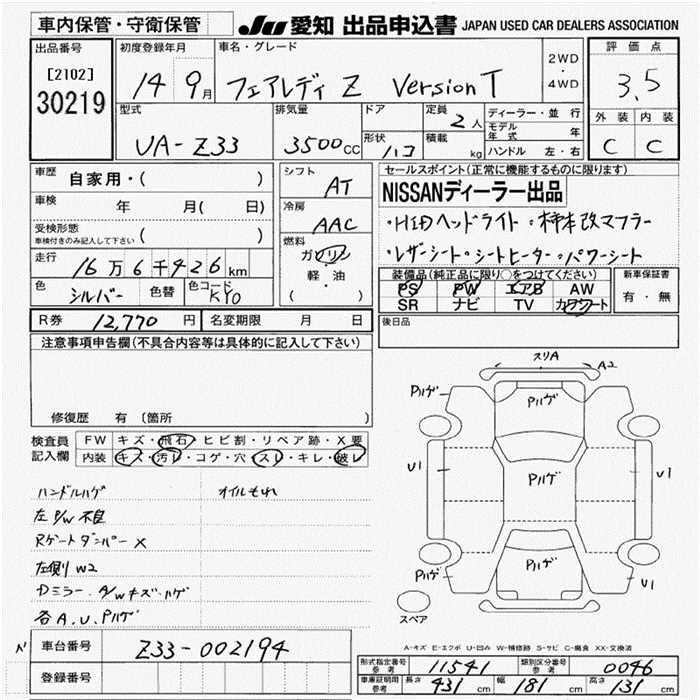 車内保管・守衛保管 JU 愛知 出品申込書 JAPAN USED CAR DEALERS ASSOCIATION
出品番号 初度登録年月 車名・グレード 評価点
[2102] 30219 14 9月 フェアレディ Z Version T 2WD・4WD 3.5
型式 排気量 ドア 定員 2人 ディーラー・並行 外装 内装
モデル年式 年
UA-Z33 3500CC 形状 ハコ 積載 kg ハンドル 左・右 C C
車歴 自家用・( )
シフト AT
セールスポイント(正常に機能するものに限ります)
NISSANディーラー出品
車検 年 月( 日)
冷房 AAC
・HIDヘッドライト ・柿本改マフラー
受検形態 ( )
車検付きのみ記入して下さい
燃料 ガソリン 軽・油 ( )
・レザーシート・シートヒーター・パワーシート
走行 16万6千426km
装備品(純正品に限り○をつけてください) 新車保証書
PS PW エアB AW 有・無
SR ナビ TV カワシート
色 シルバー 色替 色コード KY0
後日品
R券 12,770円 名変期限 月 日
注意事項申告欄(不具合内容等は具体的に記入して下さい)
修復歴 有 〔箇所
スリA A2
Pハゲ Pハゲ
U1 Pハゲ U1
Pハゲ Pハゲ U1
スペア
検査員記入欄 FW キズ・飛石・ヒビ割・リペア跡・X要
内装 キズ・汚レ・コゲ・穴・スレ・キレ・破レ
ハンドルハゲ オイルもれ
左P/W不良
Rゲートダンパー×
左側W2
Dミラー、A/Wキズ・ハゲ
各A.U.Pハゲ
A-キズ E-エクボ U-凹み W-補修跡 S-サビ C-腐食 XX-交換済
車台番号 Z33-002194
登録番号
形式指定番号 参考 11541 類別区分番号 参考 0046
車庫証明用 参考 長さ 431cm 幅 181cm 高さ 131cm